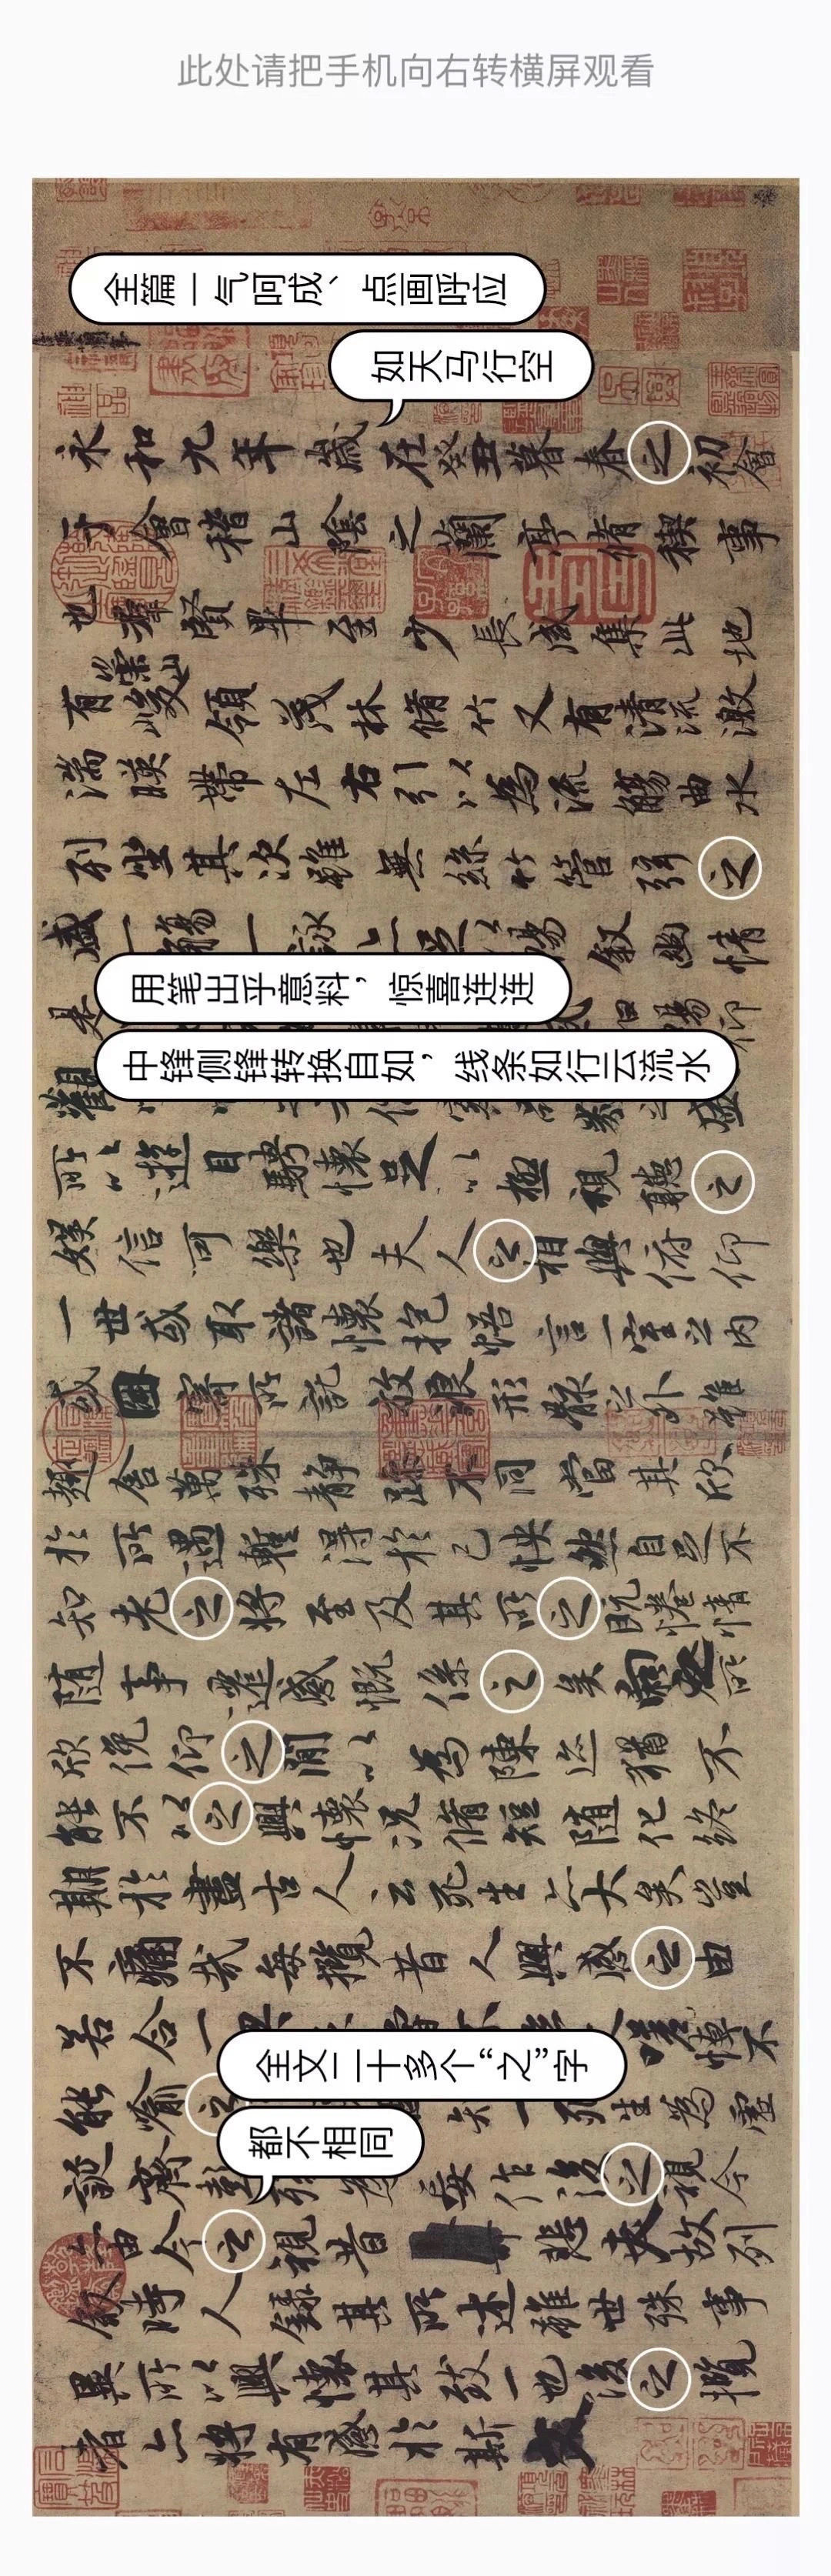 此处请把手机向右转横屏观看
全篇一气呵成、点画呼应
如天马行空
永和九年歲在癸丑暮春之初會
于會稽山陰之蘭亭脩稧事
也群賢畢至少長咸集此地
有崇山峻領茂林脩竹又有清流激
湍暎帶左右引以為流觴曲水
列坐其次雖無絲竹管弦之
盛一觴一詠亦足以暢敘幽情
是暢仰
用笔出乎意料，惊喜连连
中锋侧锋转换自如，线条如行云流水
觀盛
所以遊目騁懷足以極視聽之
娛信可樂也夫人之相與俯仰
一世或取諸懷抱悟言一室之內
或因寄所託放浪形骸之外雖
趣舍萬殊靜躁不同當其欣
於所遇暫得於己快然自足不
知老之將至及其所之既惓情
隨事遷感慨係之矣向之所
欣俛仰之閒以為陳迹猶不
能不以之興懷況脩短隨化終
期於盡古人云死生亦大矣豈
不痛哉每攬昔人興感之由
若合一嗟悼不
全文二十多个“之”字
能喻之知一死生為虛
都不相同
誕齊彭殤為妄作後之視今
亦由今之視昔悲夫故列
敘時人錄其所述雖世殊事
異所以興懷其致一也後之攬
者亦將有感於斯文